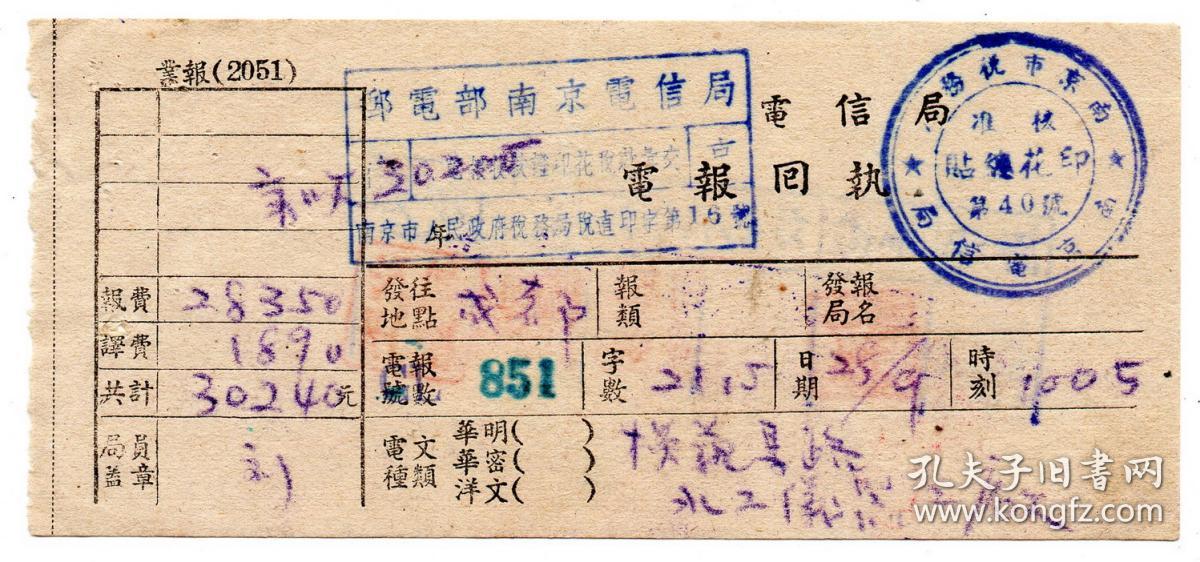 業報(2051)
郵電部南京電信局
30205
南京市人民政府稅務局稅直印字第16號
年
電信局
電報回執
南京市稅務局
核准
印花總貼
第40號
南京電信局
報費 28350
譯費 1890
共計 30240元
局員蓋章 劉
發往地點 成都
報類
發報局名
電報號數 851
字數 21.15
日期 28/9
時刻 1005
電文種類
華明( )
華密( )
洋文( )
水工儀器
孔夫子旧书网
www.kongfz.com